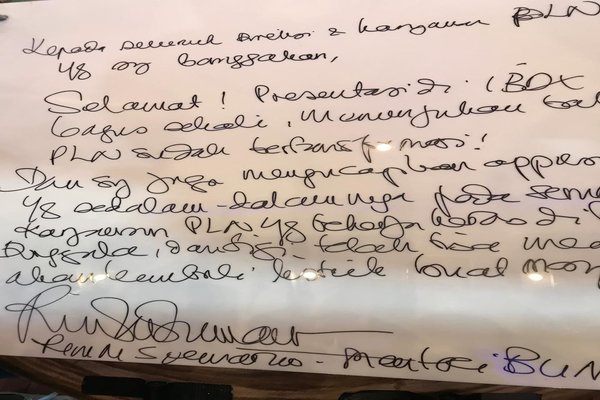 Kepada seluruh Direksi & karyawan PLN
yg sy banggakan,
Selamat! Presentasi di IBDX
bagus sekali, Menunjukan ba
PLN sudah tertansformasi!
Dan sy juga mengucapkan appres
yg sedalam-dalamnya pada sem
karyawan PLN yg bekerja keras di
Donggala, dan Sigi, telah bisa me
akan kembali listrik
Rini M Soemarno - Menteri BUMN